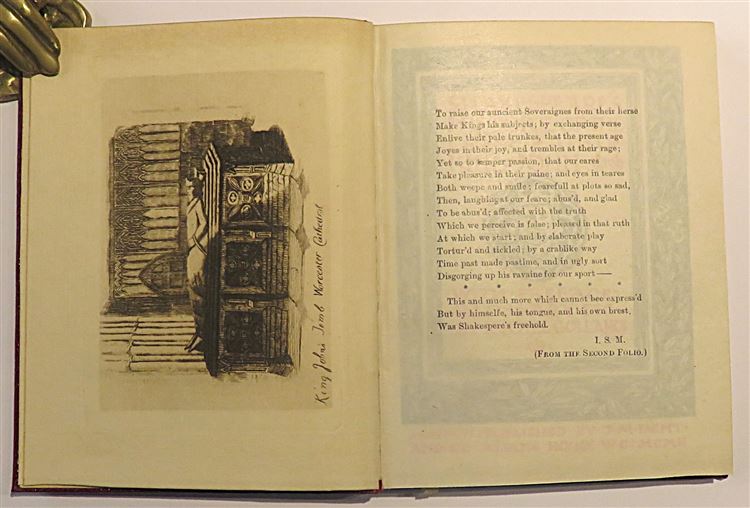 King John's Tomb Worcester Cathedral
To raise our auncient Soveraignes from their herse
Make Kings his subjects; by exchanging verse
Enlive their pale trunkes, that the present age
Joyes in their joy, and trembles at their rage;
Yet so to temper passion, that our eares
Take pleasure in their paine; and eyes in teares
Both weepe and smile; fearefull at plots so sad,
Then, laughing at our feare; abus'd, and glad
To be abus'd; affected with the truth
Which we perceive is false; pleased in that ruth
At which we start; and by elaborate play
Tortur'd and tickled; by a crablike way
Time past made pastime, and in ugly sort
Disgorging up his ravaine for our sport—
* * * * * *
This and much more which cannot bee express'd
But by himselfe, his tongue, and his own brest,
Was Shakespere's freehold.
I. S. M.
(FROM THE SECOND FOLIO.)